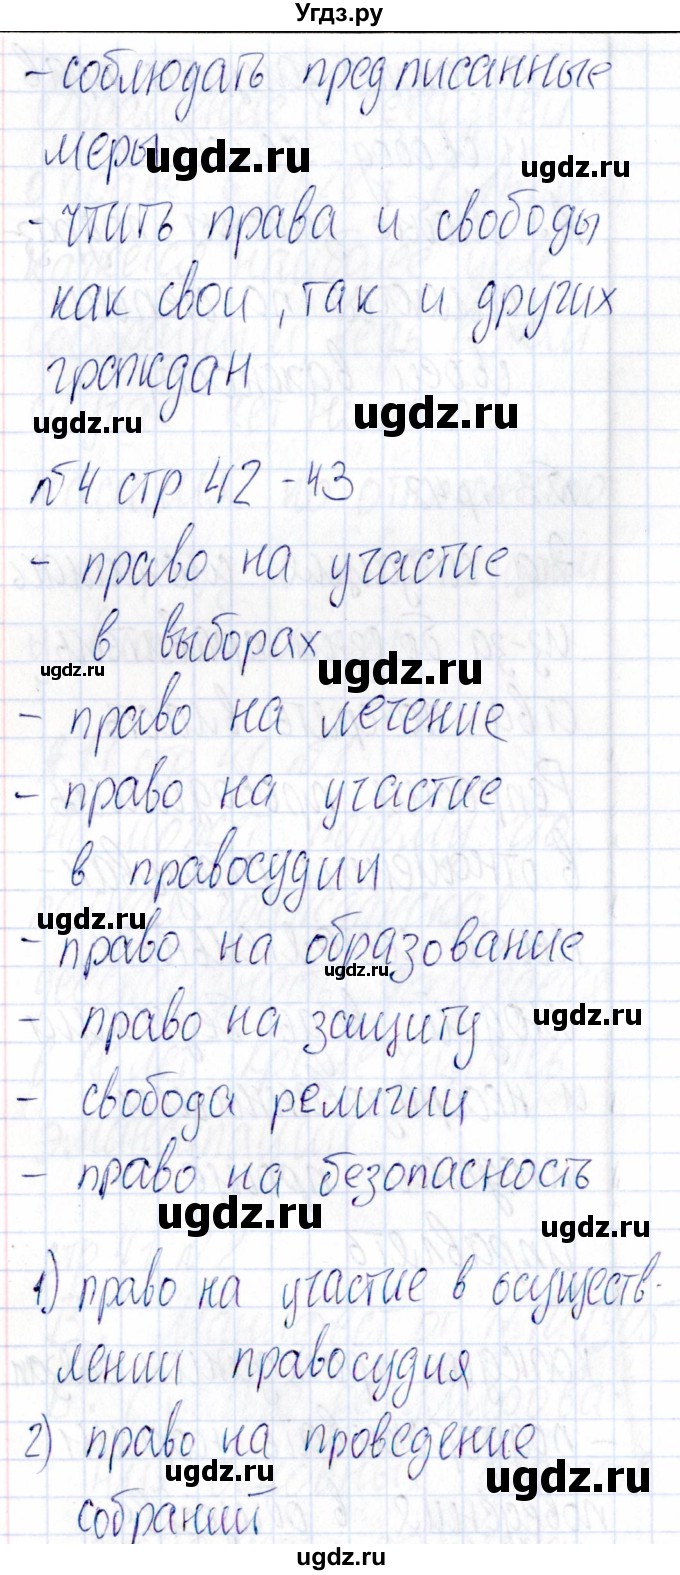 Угдз.ру
- соблюдать предписанные
меры
ugdz.ru
ugdz.ru
- чтить права и свободы
как свои, так и других
граждан
ugdz.ru
ugdz.ru
№4 стр 42-43
- право на участие
в выборах
ugdz.ru
ugdz.ru
- право на лечение
- право на участие
в правосудии
ugdz.ru
- право на образование
ugdz.ru
- право на защиту
ugdz.ru
- свобода религии
- право на безопасность
ugdz.ru
ugdz.ru
1) право на участие в осуществ-
лении правосудия
2) право на проведение
ugdz.ru
ugdz.ru
собраний
ugdz.ru